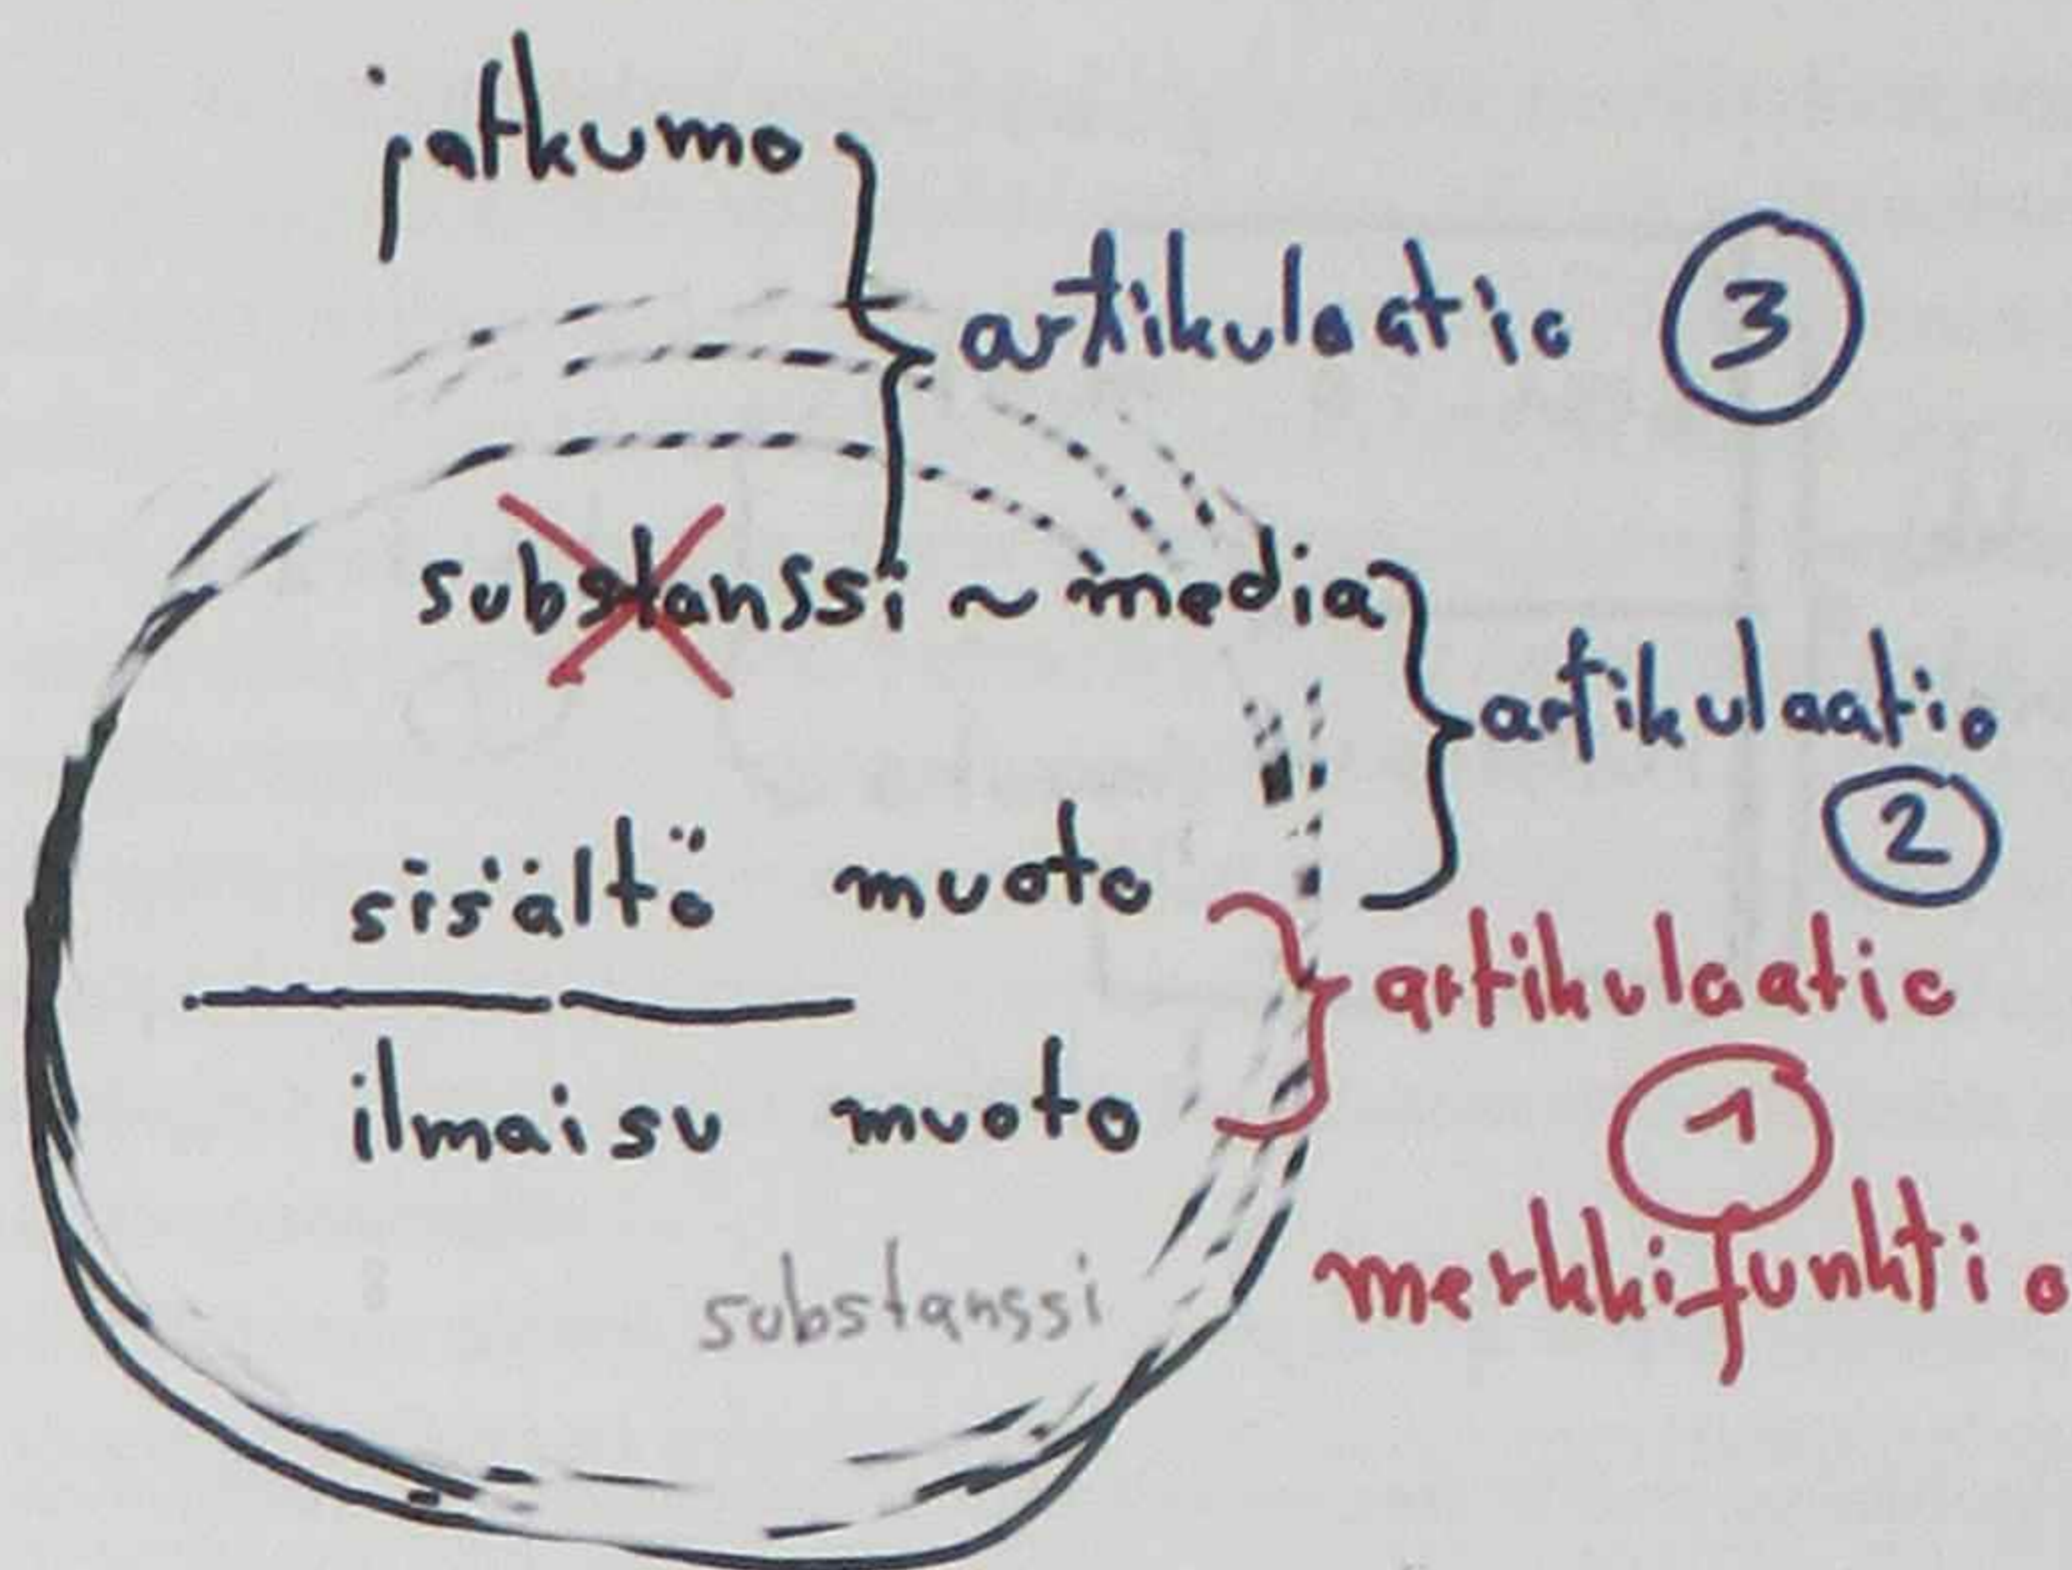 jatkumo
artikulaatio 3
substanssi ~ media
artikulaatio
2
sisältö muoto
artikulaatio
ilmaisu muoto
1
merkkifunktio
substanssi